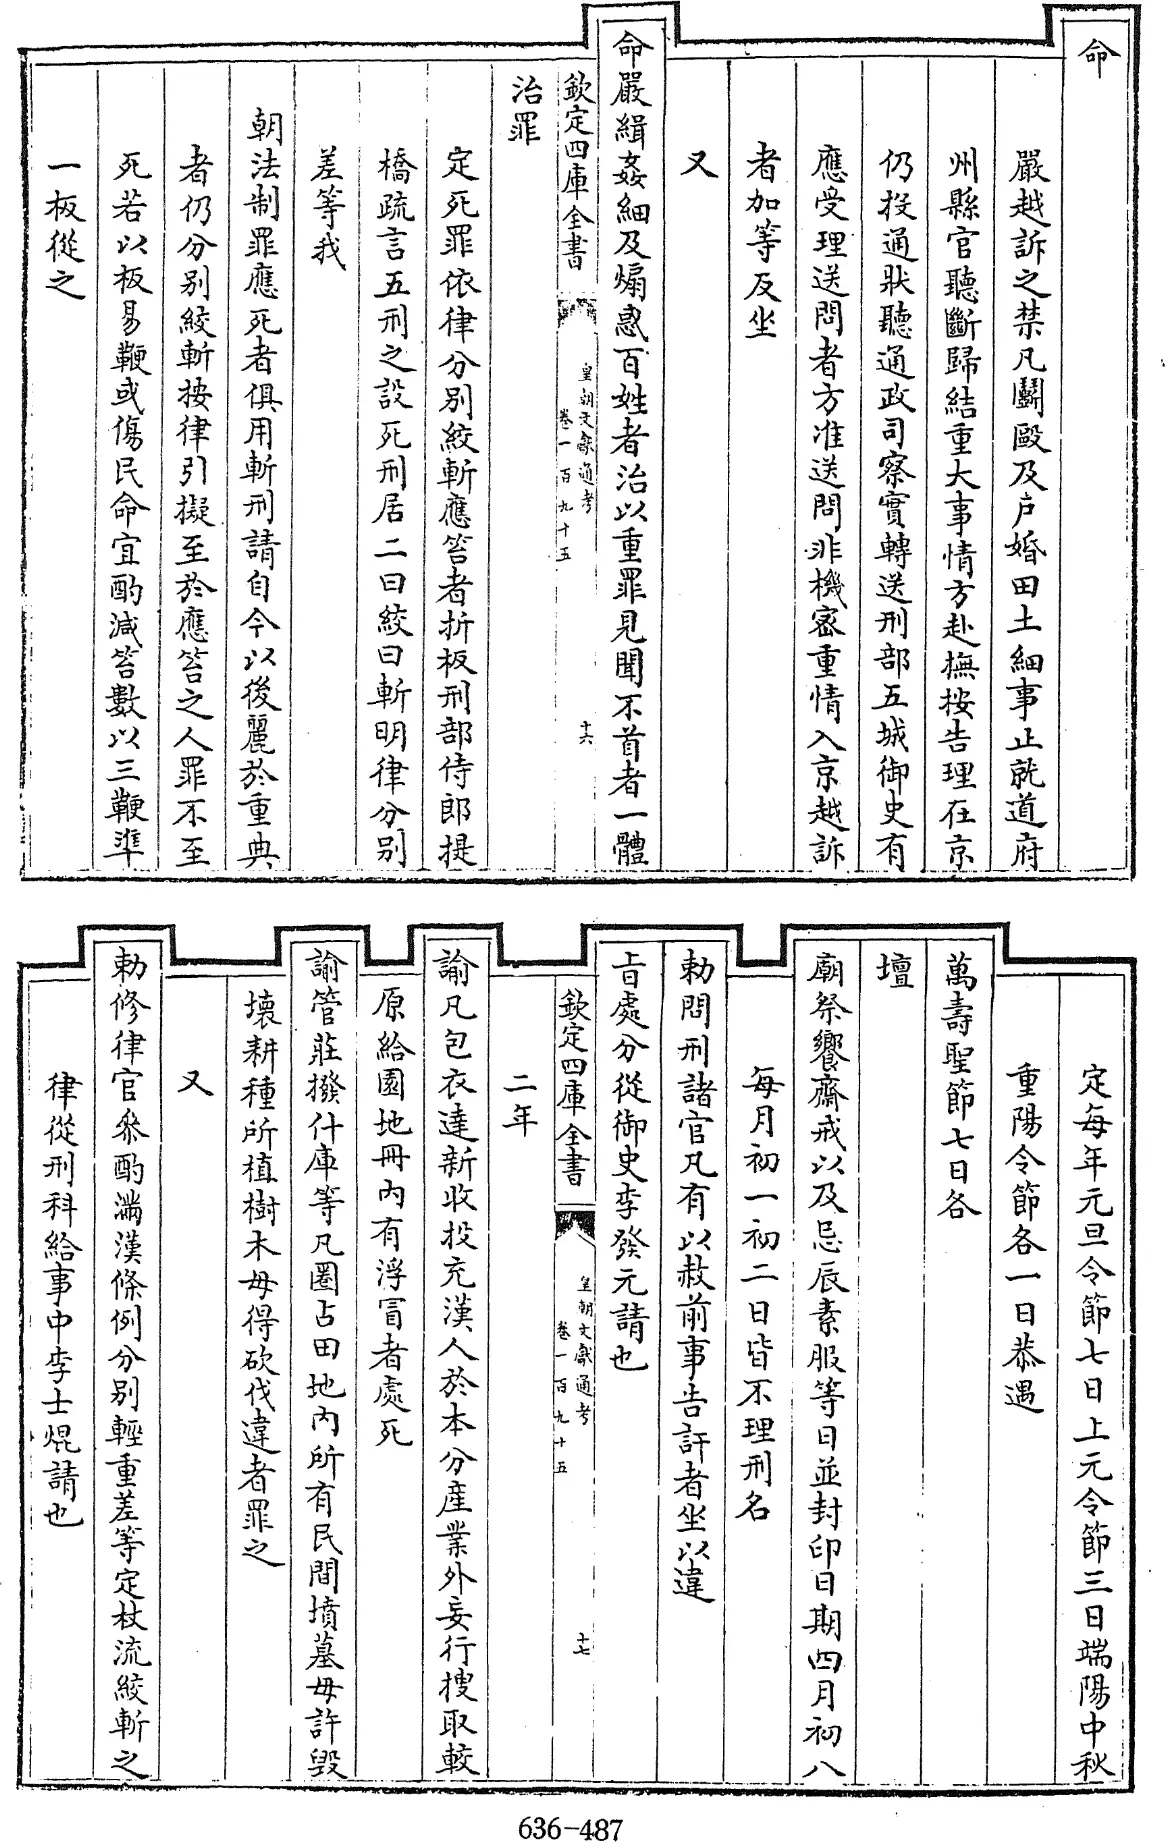 命
嚴越訴之禁凡鬭毆及户婚田土細事止就道府
州縣官聽斷歸結重大事情方赴撫按告理在京
仍投通狀聽通政司察實轉送刑部五城御史有
應受理送問者方准送問非機密重情入京越訴
者加等反坐
又
命嚴緝姦細及煽惑百姓者治以重罪見聞不首者一體
欽定四庫全書
皇朝文獻通考
卷一百九十五
十六
治罪
定死罪依律分别絞斬應笞者折板刑部侍郎提
橋疏言五刑之設死刑居二曰絞曰斬明律分别
差等我
朝法制罪應死者俱用斬刑請自今以後麗於重典
者仍分别絞斬按律引擬至於應笞之人罪不至
死若以板易鞭或傷民命宜酌減笞數以三鞭準
一板從之
定每年元旦令節七日上元令節三日端陽中秋
重陽令節各一日恭遇
萬壽聖節七日各
壇
廟祭饗齋戒以及忌辰素服等日並封印日期四月初八
每月初一初二日皆不理刑名
勅問刑諸官凡有以赦前事告訐者坐以違
旨處分從御史李發元請也
欽定四庫全書
皇朝文獻通考
卷一百九十五
十七
二年
諭凡包衣達新收投充漢人於本分産業外妄行搜取較
原給園地冊内有浮冒者處死
諭管莊撥什庫等凡圈占田地内所有民間墳墓毋許毁
壊耕種所植樹木毋得砍伐違者罪之
又
勅修律官叅酌滿漢條例分别輕重差等定杖流絞斬之
律從刑科給事中李士焜請也
636-487